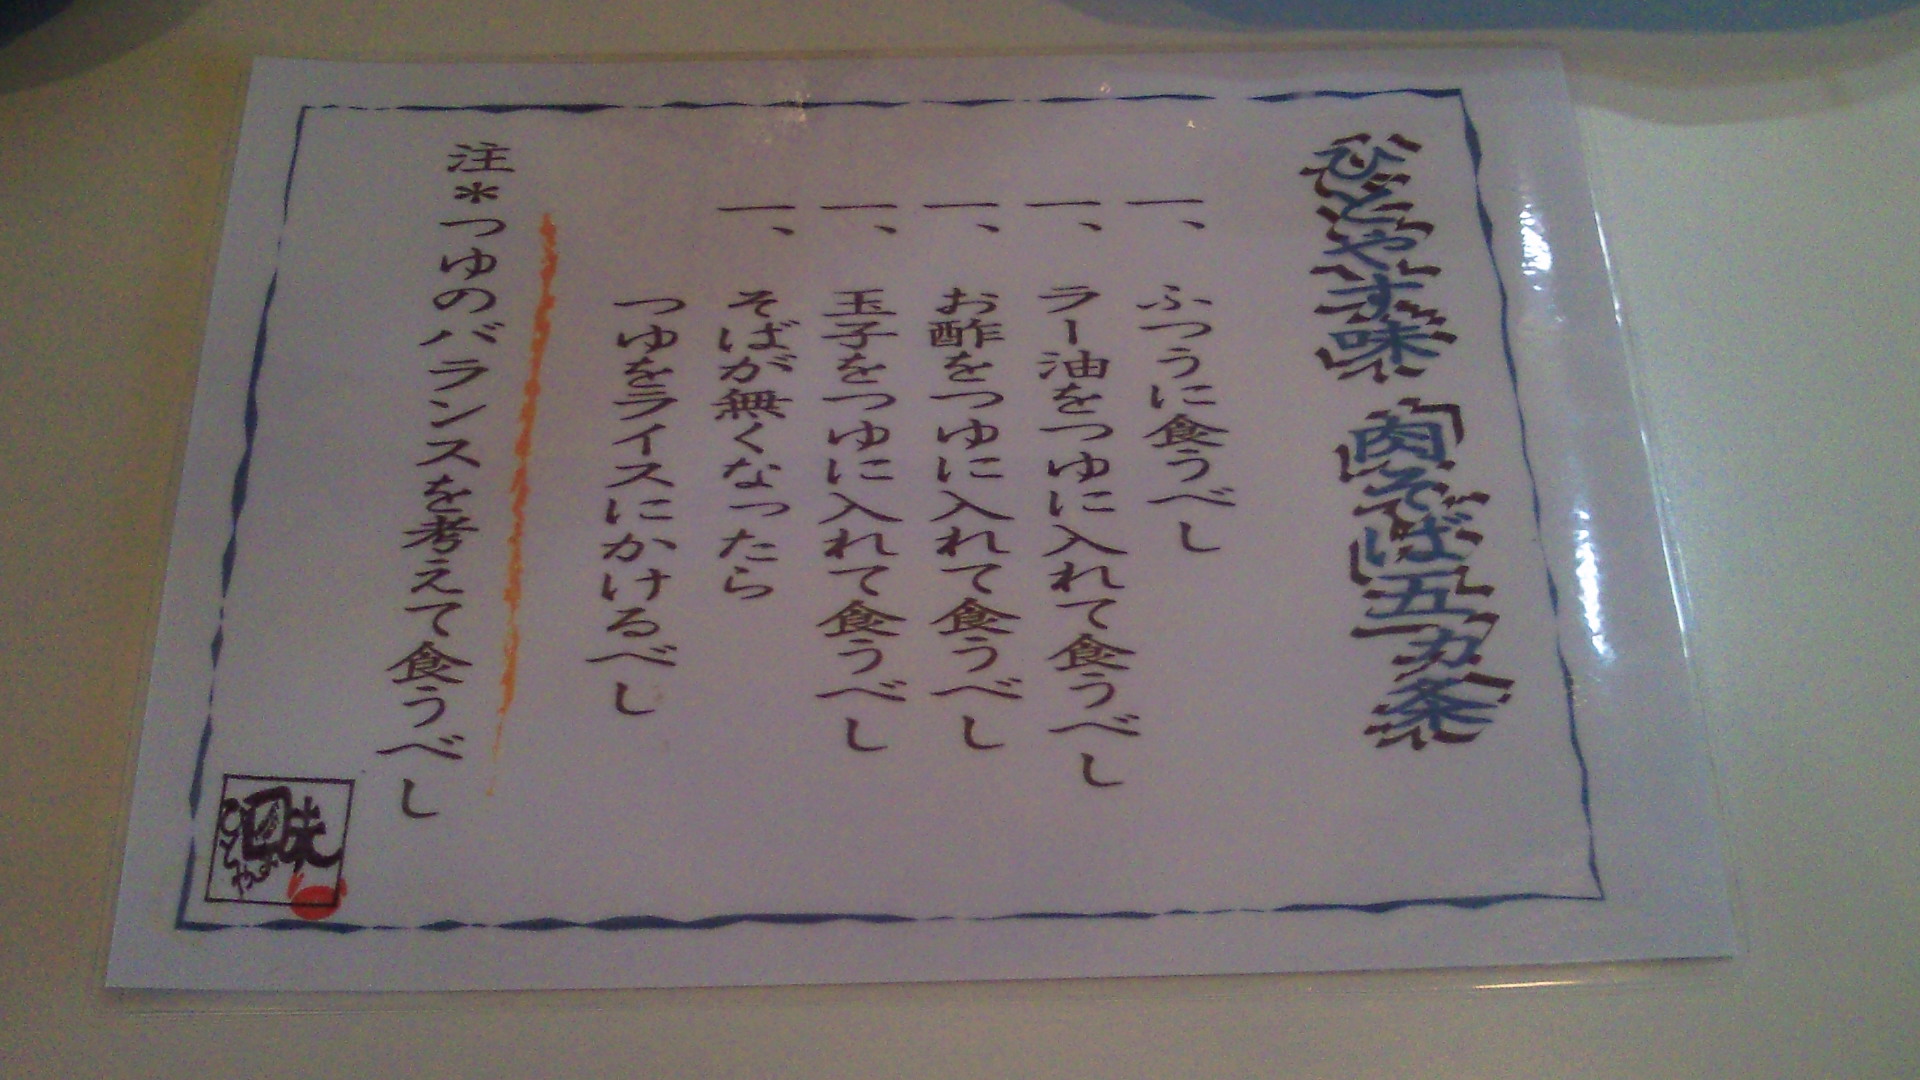 ひとやす味 肉そば五カ条
一、ふつうに食うべし
一、ラー油をつゆに入れて食うべし
一、お酢をつゆに入れて食うべし
一、玉子をつゆに入れて食うべし
一、そばが無くなったら
つゆをライスにかけるべし
注＊つゆのバランスを考えて食うべし
味